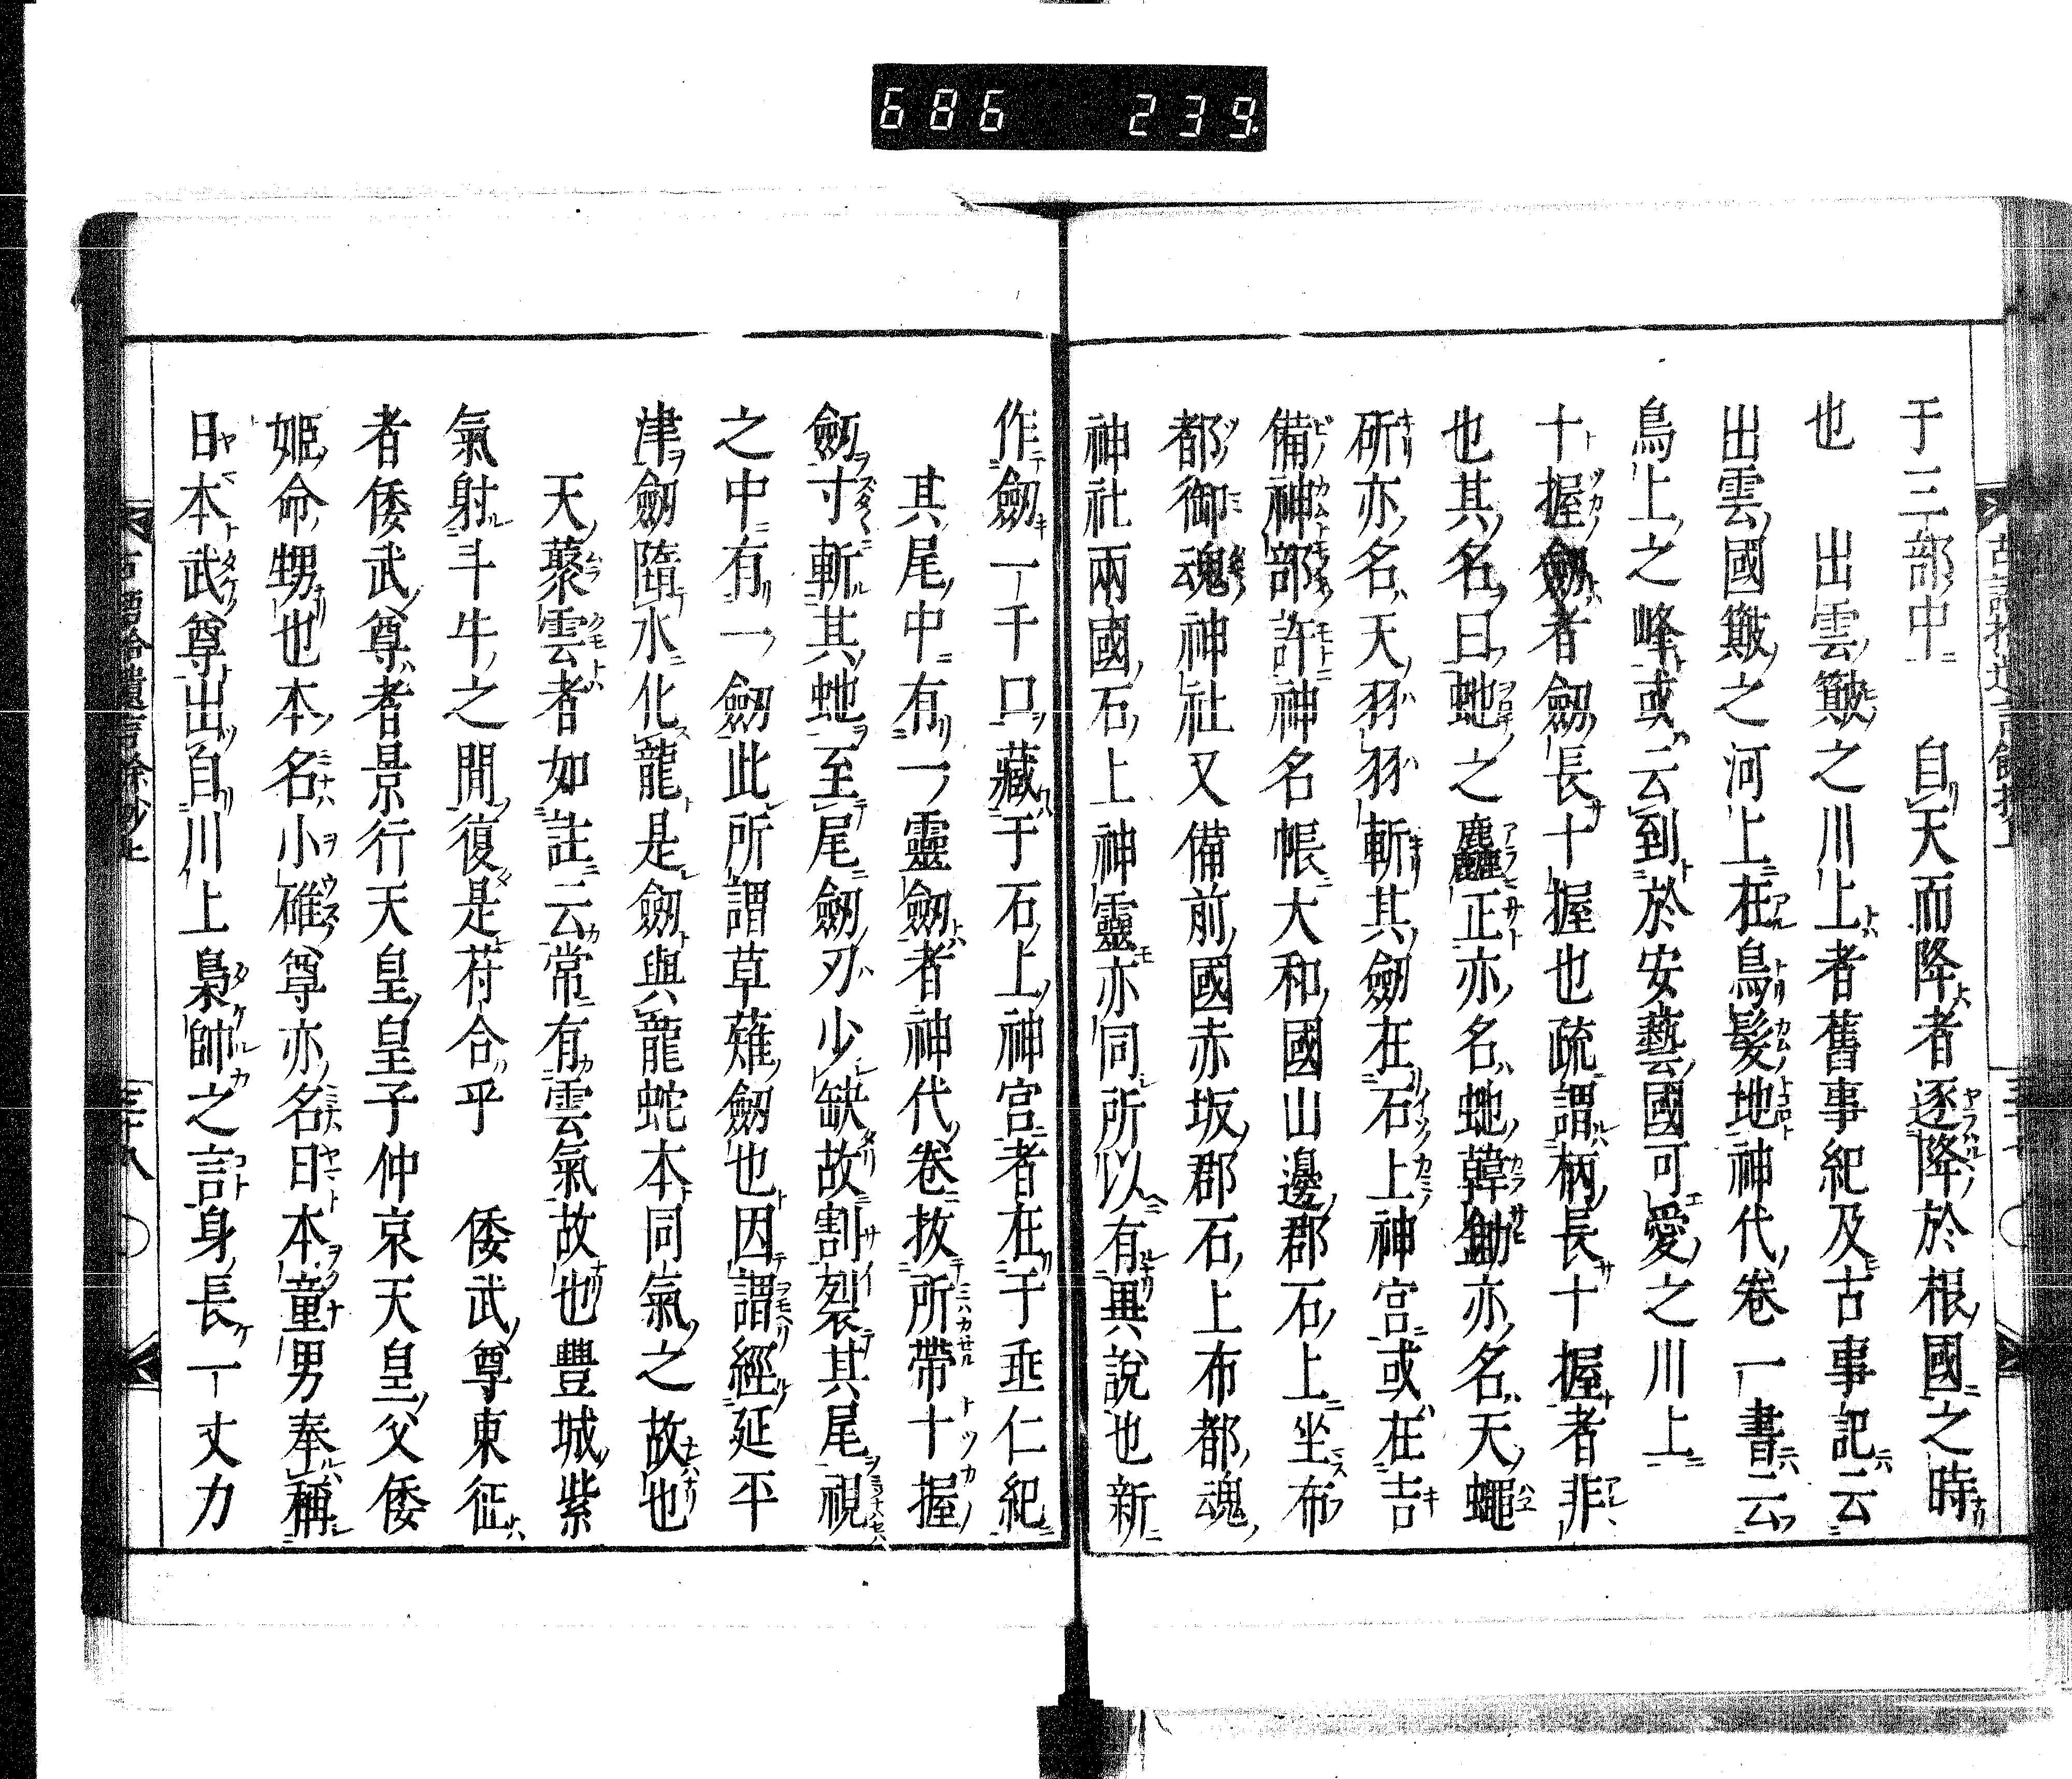 686 239.
于三部中 自天而降者逐降於根國之時
也 出雲簸之川上者舊事紀及古事記云
出雲國簸之河上在鳥髮地神代卷一書云
鳥上之峰或云到於安藝國可愛之川上
十握劔者劔長十握也疏謂柄長十握者非
也其名曰蛇之麤正亦名蛇韓鋤亦名天蠅
斫亦名天羽羽斬其劔在石上神宮或在吉
備神部許神名帳大和國山邊郡石上坐布
都御魂神社又備前國赤坂郡石上布都魂
神社兩國石上神靈亦同所以有異說也新
作劔一千口藏于石上神宮者在于垂仁紀
其尾中有一靈劔者神代卷拔所帶十握
劔寸斬其蛇至尾劔刃少缺故割裂其尾視
之中有一劔此所謂草薙劔也因謂經延平
津劔墮水化龍是劔與龍蛇本同氣之故也
天藂雲者如註云常有雲氣故也豐城紫
氣射斗牛之間復是苻合乎 倭武尊東征
者倭武尊者景行天皇皇子仲哀天皇父倭
姬命甥也本名小碓尊亦名日本童男奉稱
日本武尊出自川上梟帥之言身長一丈力
古語拾遺言餘抄上
三十八